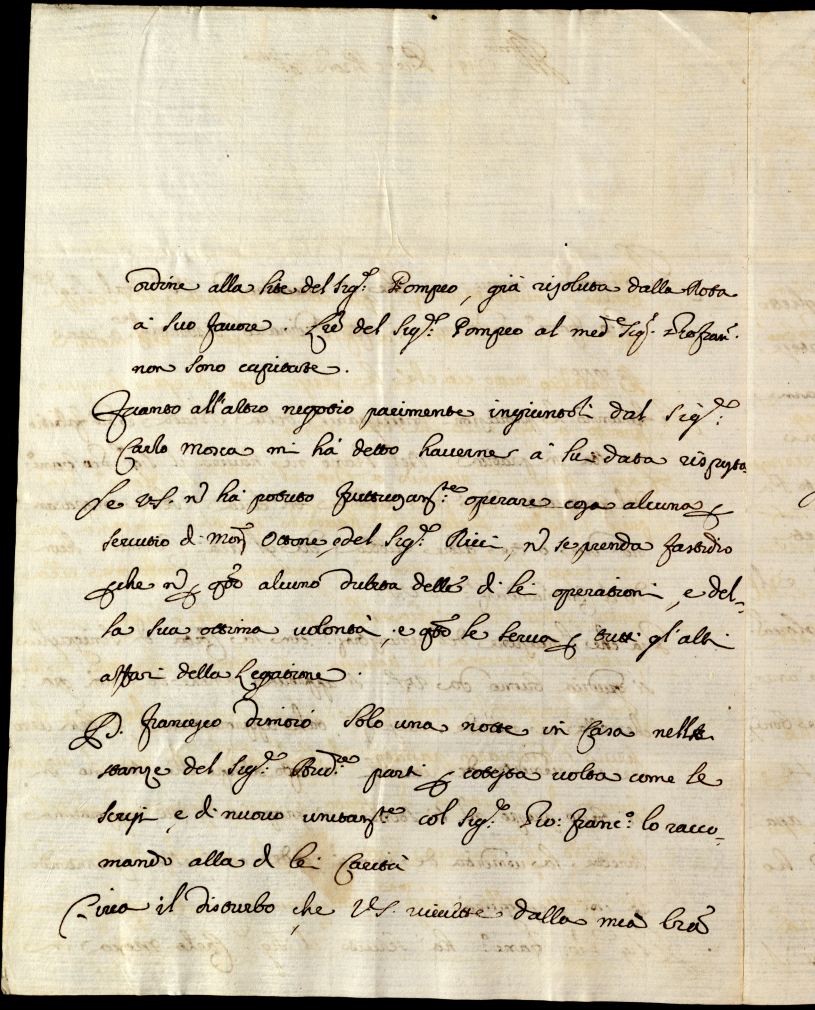 ordine alla lite del Sig.r Pompeo, già risoluta dalla Rota
à suo favore. Lr̃e del Sig.r Pompeo al med.o Sig.r Piofran.
non sono capitate.
Quanto all'altro negotio parimente ingiuntoli dal Sig.r
Carlo Mosca mi hà detto haverne à lui data risposta
Se V.S. nõ hà potuto fruttuosam.te operare cosa alcuna ꝑ
servitio di Mons.r Ottone, e del Sig.r Ricci, nõ se prenda fastidio
ꝑche nõ ꝑ q̃sto alcuno dubita delle di lei operationi, e del=
la sua ottima volontà, e q̃sto le serva ꝑ tutti gl'altri
affari della Legatione.
D. Francesco dimorò solo una notte in Casa nelle
stanze del Sig.r parti ꝑ cotesta volta come le
scrissi, e di nuovo unitam.te col Sig.r Pio: Franc.o lo racco=
mando alla di lei Carità
Circa il disturbo, che V.S. ricevette dalla mia lr̃a